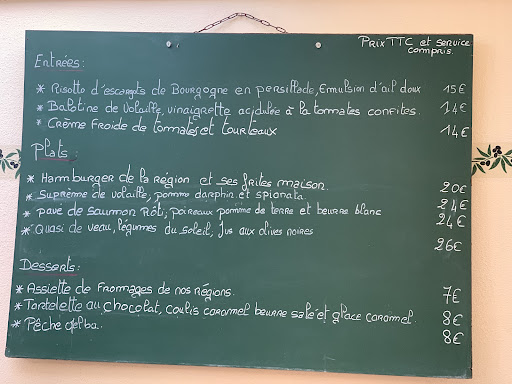 Prix TTC et service
compris.
Entrées:
* Risotto d'escargots de Bourgogne en persillade, Emulsion d'ail doux 15€
* Balotine de Volaille, vinaigrette acidulée à la tomates confites. 14€
* Crème Froide de tomates et tourteaux 14€
Plats:
* Hamburger de la région et ses frites maison. 20€
* Suprême de volaille, pomme darphin et spionata 24€
* pavé de saumon Rôti, poireaux pomme de terre et beurre blanc 24€
* Quasi de veau, légumes du soleil, Jus aux olives noires 26€
Desserts:
* Assiette de Fromages de nos régions. 7€
* Tartelette au chocolat, coulis caramel beurre salé et glace caramel. 8€
* Pêche delba. 8€